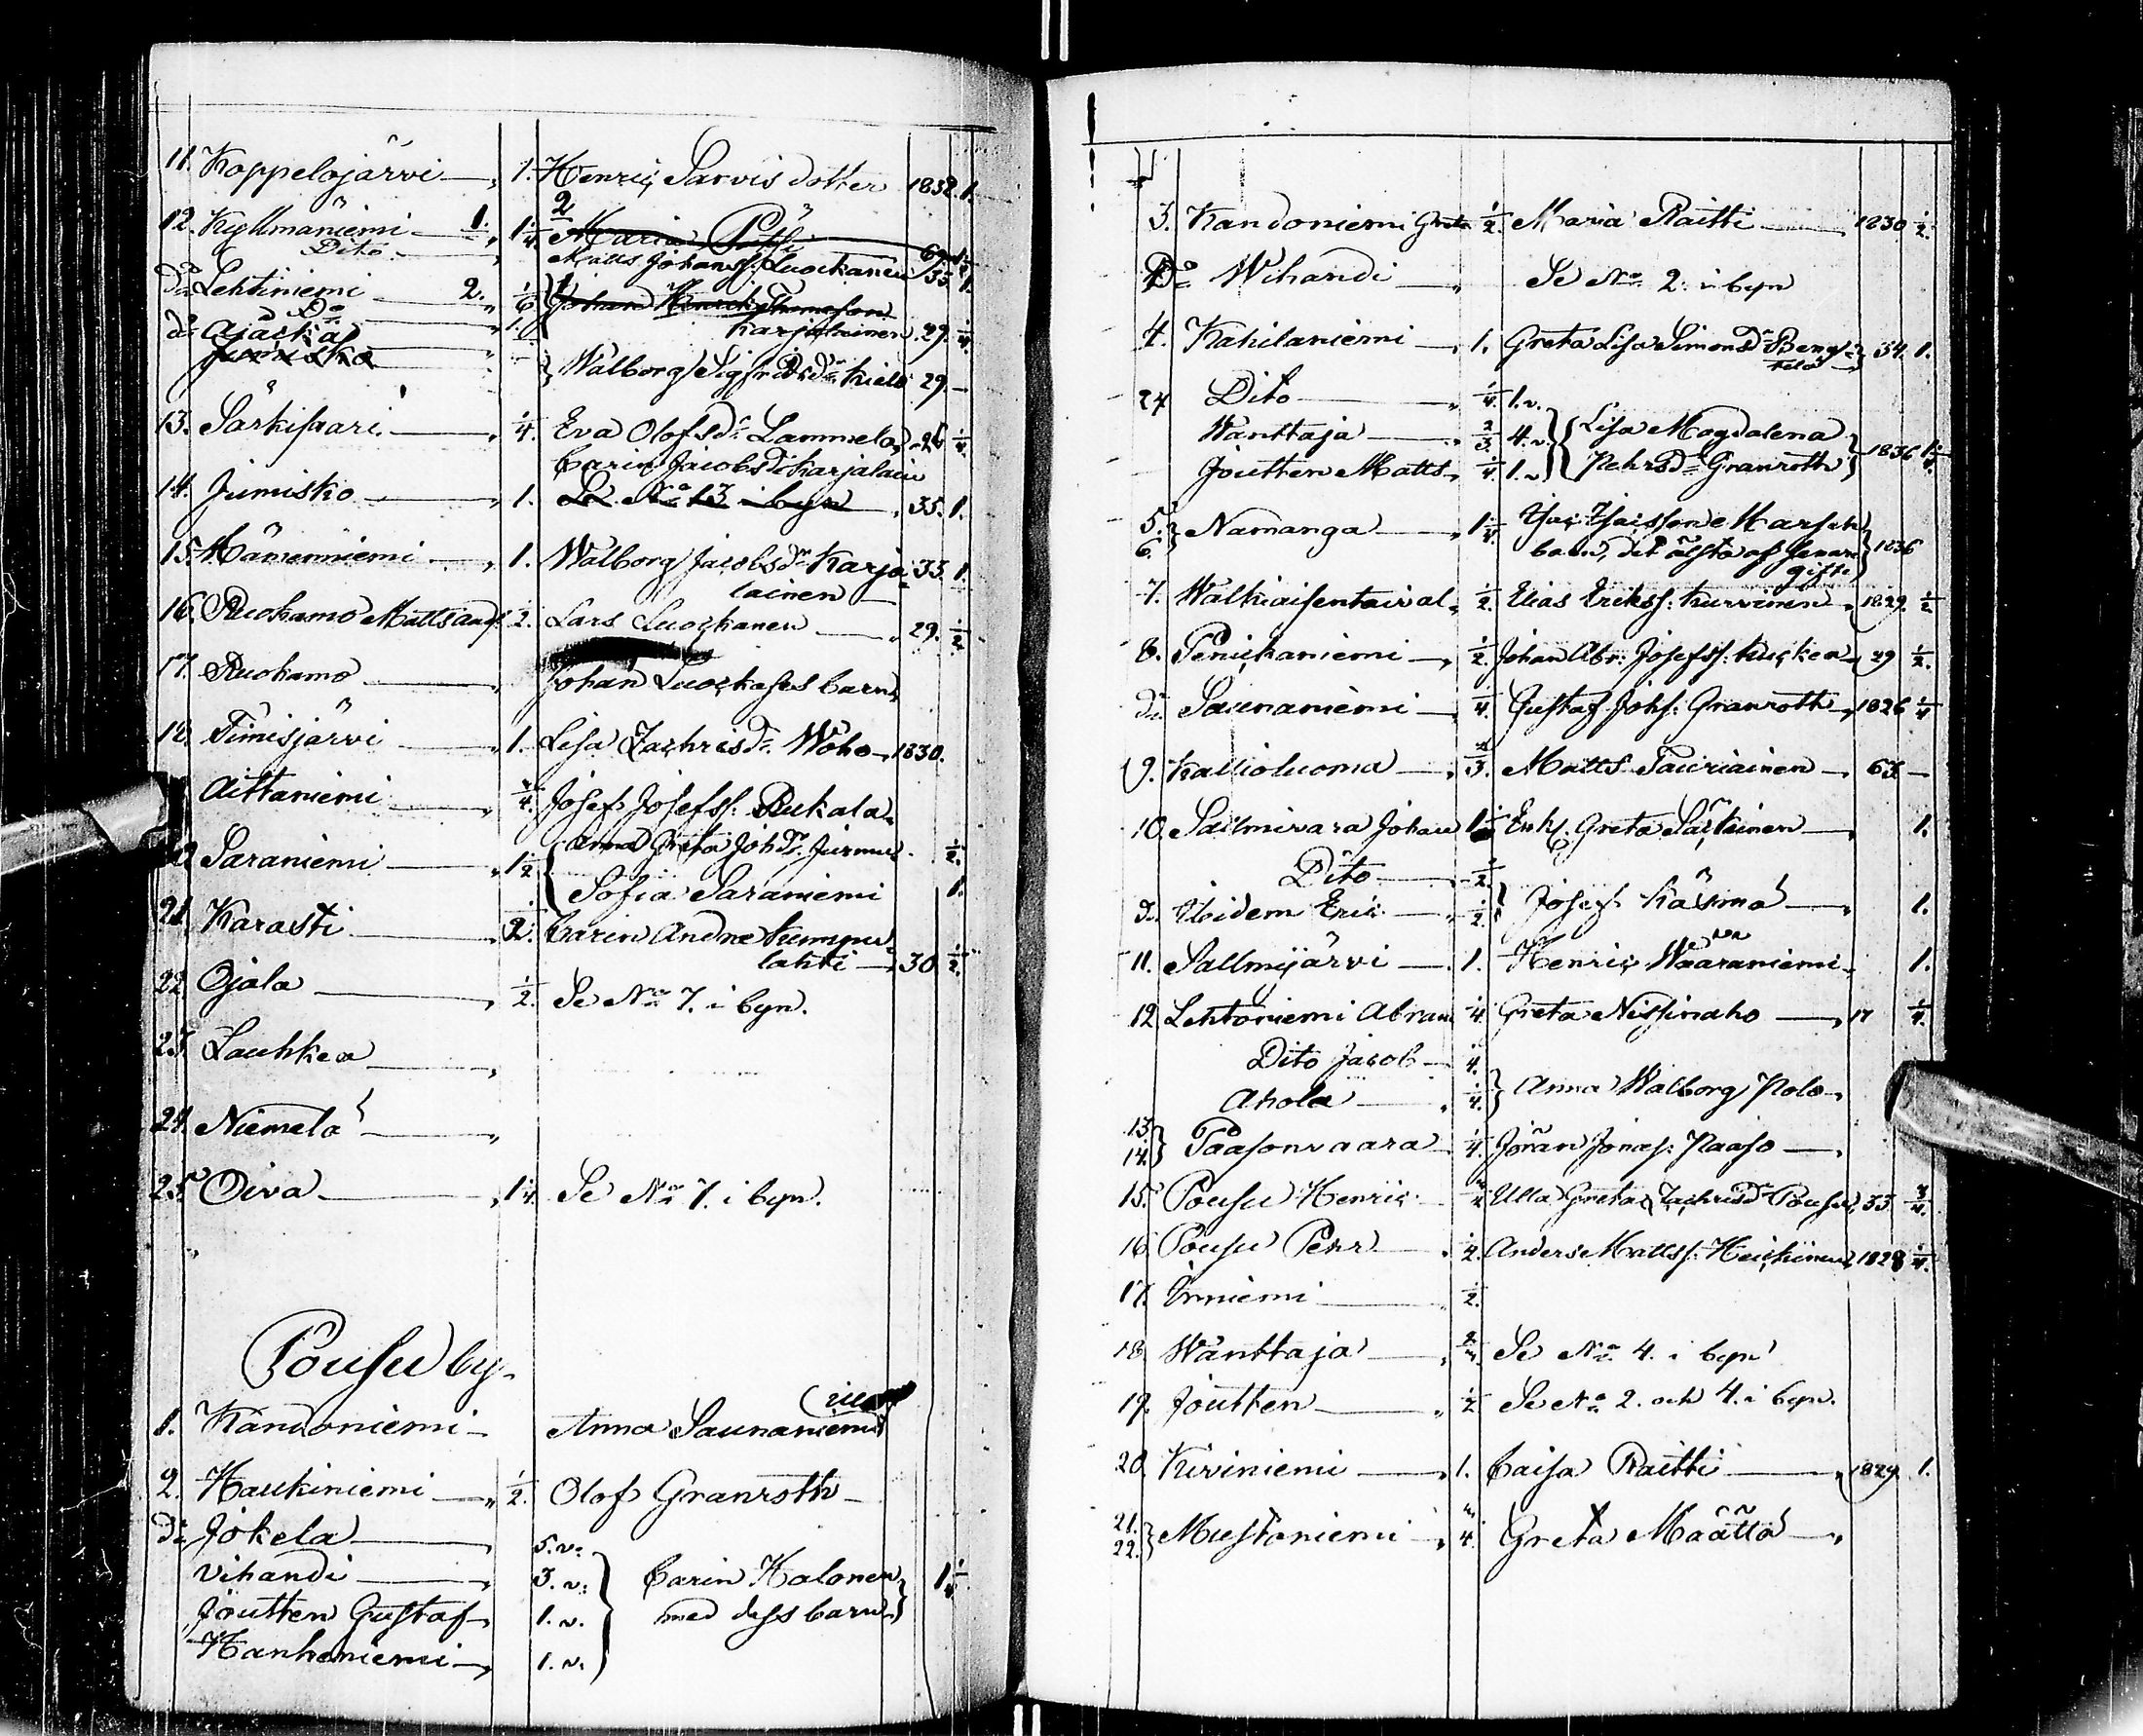 11. Koppelojärvi 1. Henric Sarvis dotter 1832. 1.
12. Kyllmäniemi 1. 1/4. Maria
Dito Matts Johanss. Luockanen 35 1.
do Lehtiniemi 2. 1/6 Johan Henrik Thomasson
do Do Karjalainen 29. 1/4
do Ajäskä
Jumisko Walborg Sigfrids dr Kielo 29.
13. Särkisaari 1/4. Eva Olofsdr Lammela 26 1/4
Carin Jacobsdr Karjalain
14. Jumisko 1. Se No 13 i byn 35. 1.
15. Hämenniemi 1. Walborg Jacobsdr Karja 33. 1.
lainen
16. Ruokamo Matts And 1/2. Lars Luockanen 29. 1/2
17. Ruokamo Johan Luockases barn
18. Timisjärvi 1. Lisa Zachrisdr Woho 1830.
Aittaniemi 3/4. Josef Josefss. Rukala
Anna Greta Johdr. Jurmu 1/2.
20 Saraniemi 1 1/2 Sofia Saraniemi 1.
21. Karasti 1/2. Carin Andrae Kumpu
lahti 30 1/2.
22. Ojala 1/2. Se No 7. i byn.
23. Lauhkea
24. Niemelä
25 Oiva 1 1/4. Se No 7. i byn.
Pousu by.
1. Kandoniemi Anna Saunaniemi
2. Haukiniemi 1/2. Olof Granroth
do Jokela 5. v.
Vihandi 3. v. Carin Halonen 1 1/4
Joutten Gustaf 1. v. med dess barn
Hanheniemi 1. v.
3. Kandoniemi Greta 1/2. Maria Raitti 1830. 1/2.
Do Wihandi Se No 2. i byn
4. Kahilaniemi 1. Greta Lisa Simonsdr Beng 34. 1.
telä
24 Dito 1/4. 1. v.
Wänttäjä 2/3. 4. v. Lisa Magdalena 1836 1 1/4.
Joutten Matts 1/4. 1. v. Pehrsdr Granroth
5. Namanga 1 1/4. Isac Isacsson Karsch
6. barn, det älsta af senare 1836
gifte
7. Walkiaisentaival 1/2. Elias Erikss. Kurvinen 1829. 1/2
8. Penickaniemi 1/2. Johan Abr. Josefss. Kucken 29 1/2.
do Saunaniemi 1/4. Gustaf Johs. Granroth 1826 1/4
9. Kallioluoma 2/3. Matts Tauriainen 63
10. Sallmivara Johan 1 Enk. Greta Särkeinen 1.
Dito 1/2.
do Ibidem Eric 1/2. Josef Käsmä 1.
11. Sallmijärvi 1. Henric Wääräniemi 1.
12. Lehtoniemi Abram 1/4. Greta Nissinaho 17 1/4.
Dito Jacob 1/4.
Ahola 1/4. Anna Walborg Polo
13.
14. Paasonvaara 1/4. Jöran Jonass. Paaso
15. Pousu Henric 3/4 Ulla Greta Zachrisdr Pousu 33 3/4.
16. Pousu Pehr 1/4. Anders Mattss. Heickinen 1828 1/4.
17. Inniemi 1/2.
18. Wänttäjä 2/3. Se No 4. i byn
19. Joutten 1/2 Se No 2. och 4. i byn.
20. Kiviniemi 1. Caisa Raitti 1829. 1.
21.
22. Mustoniemi 3/4. Greta Määttä